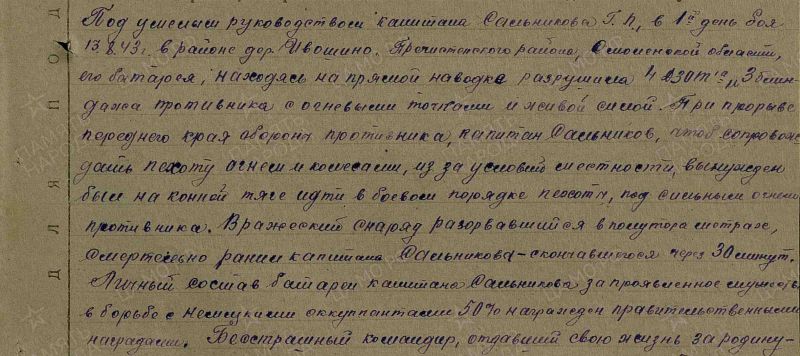 Под умелым руководством капитана Сальникова Г.П., в 1й день боя
13.8.43г. в районе дер. Ивошино, Пречистенского района, Смоленской области,
его батарея, находясь на прямой наводке разрушила 4 и 3 блин-
дажа противника с огневыми точками и живой силой. При прорыве
переднего края обороны противника, капитан Сальников, чтоб сопровож
дать пехоту огнем и колесами, из за условий местности, вынужден
был на конной тяге идти в боевом порядке пехоты, под сильным огнем
противника. Вражеский снаряд разорвавшийся в полутора метрах,
смертельно ранил капитана Сальникова - скончавшегося через 30 минут.
Личный состав батареи капитана Сальникова за проявленное мужество
в борьбе с немецкими оккупантами 50% награжден правительственными
наградами. Бесстрашный командир, отдавший свою жизнь за родину -
ДЛЯ ПОД